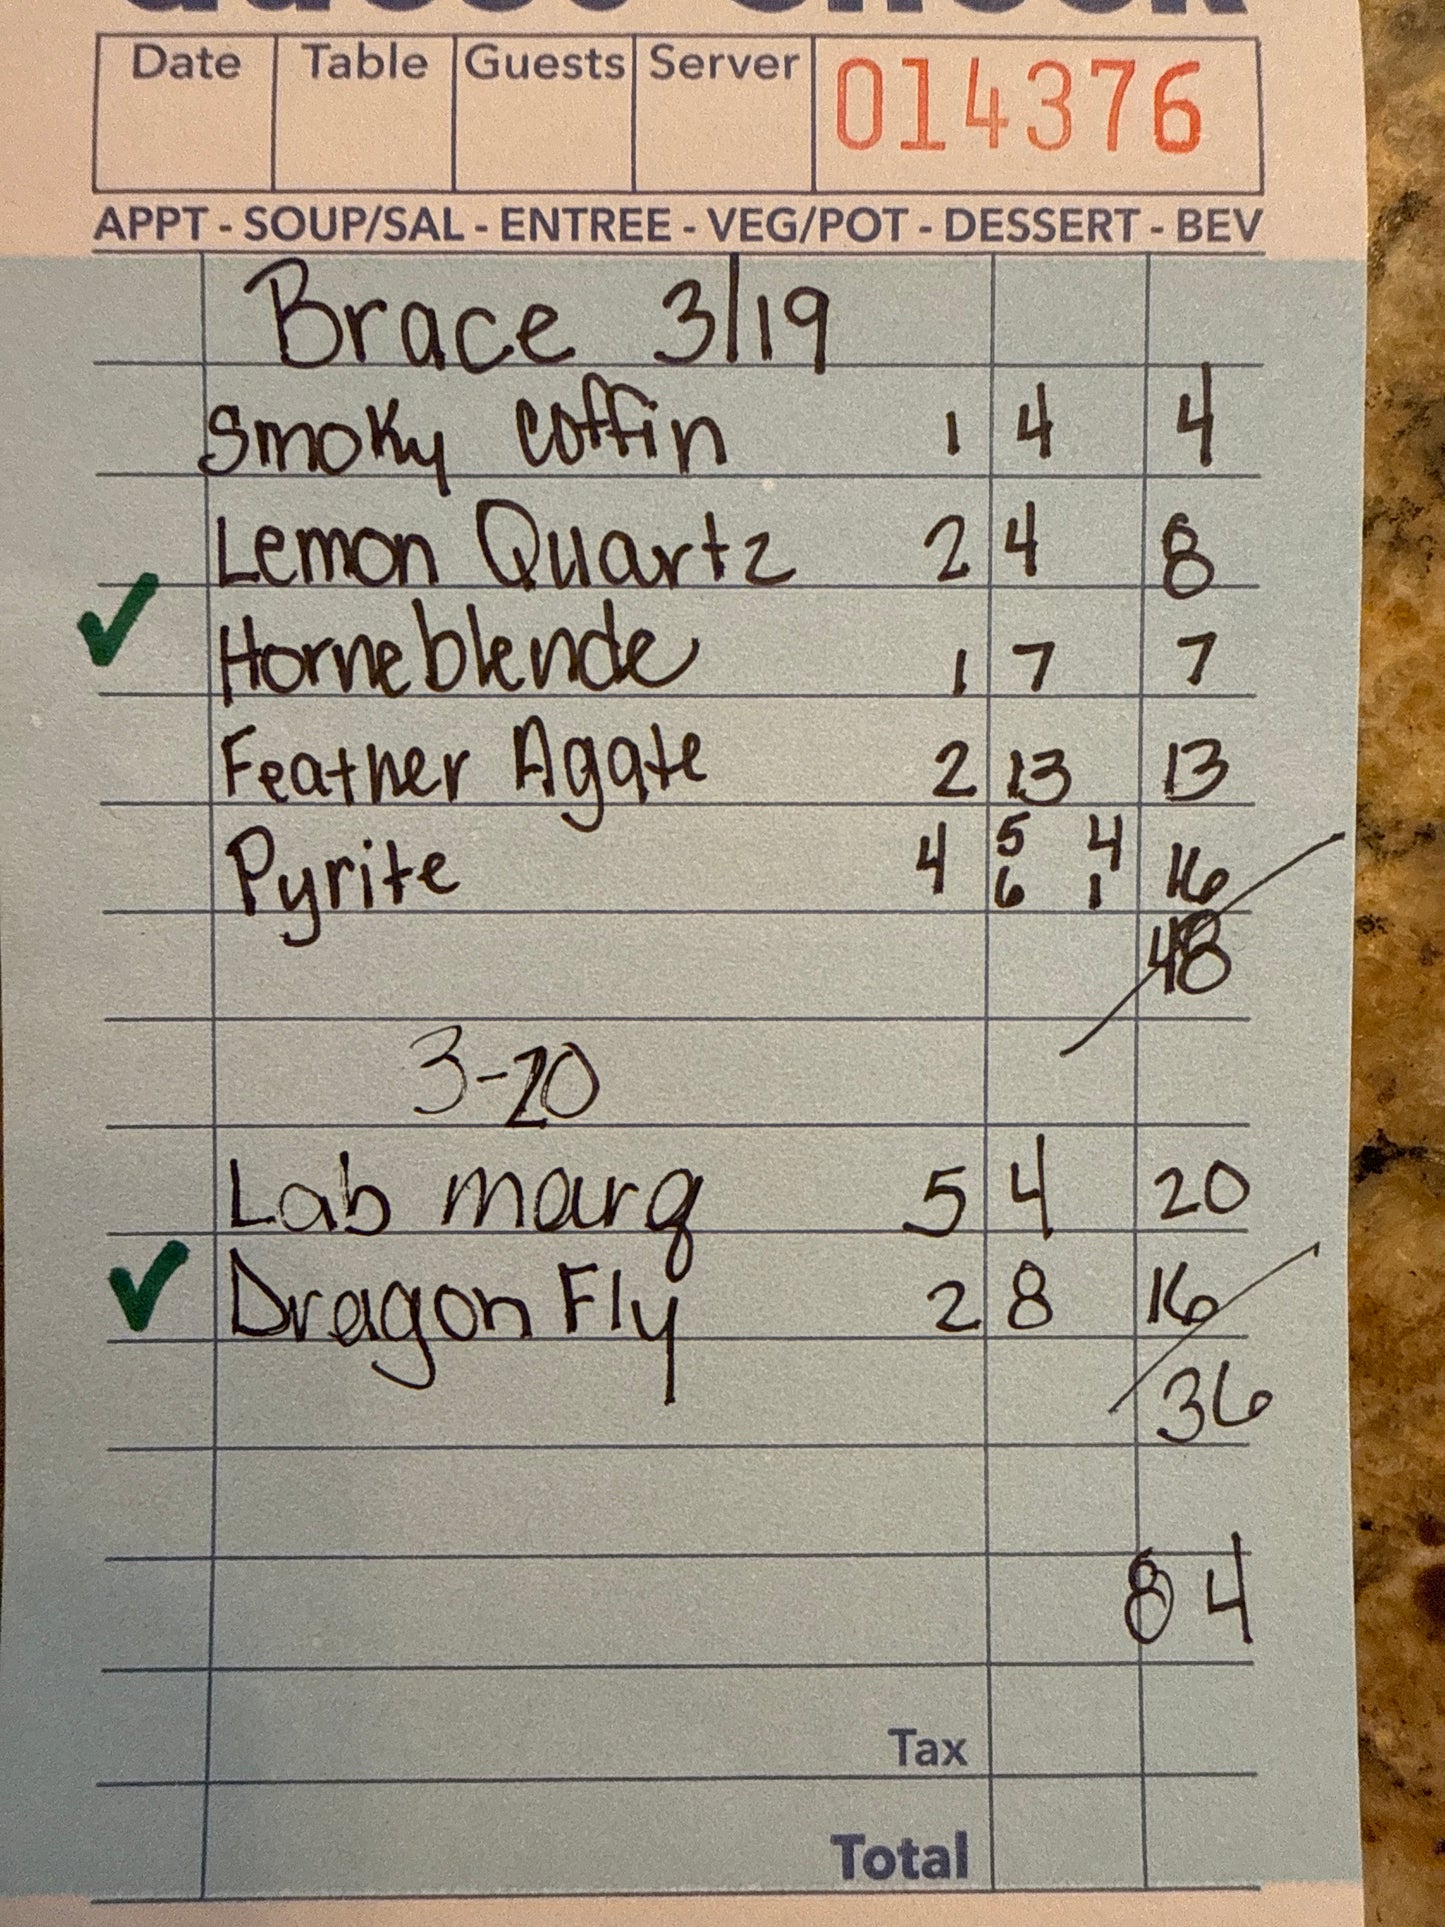 Guest Check
Date Table Guests Server 014376
APPT - SOUP/SAL - ENTREE - VEG/POT - DESSERT - BEV
Brace 3/19
Smoky coffin 1 4 4
Lemon Quartz 2 4 8
Horneblende 1 7 7
Feather Agate 2 13 13
Pyrite 4 5 4 16
6 1
48
3-20
Lab marq 5 4 20
Dragon Fly 2 8 16
36
84
Tax
Total